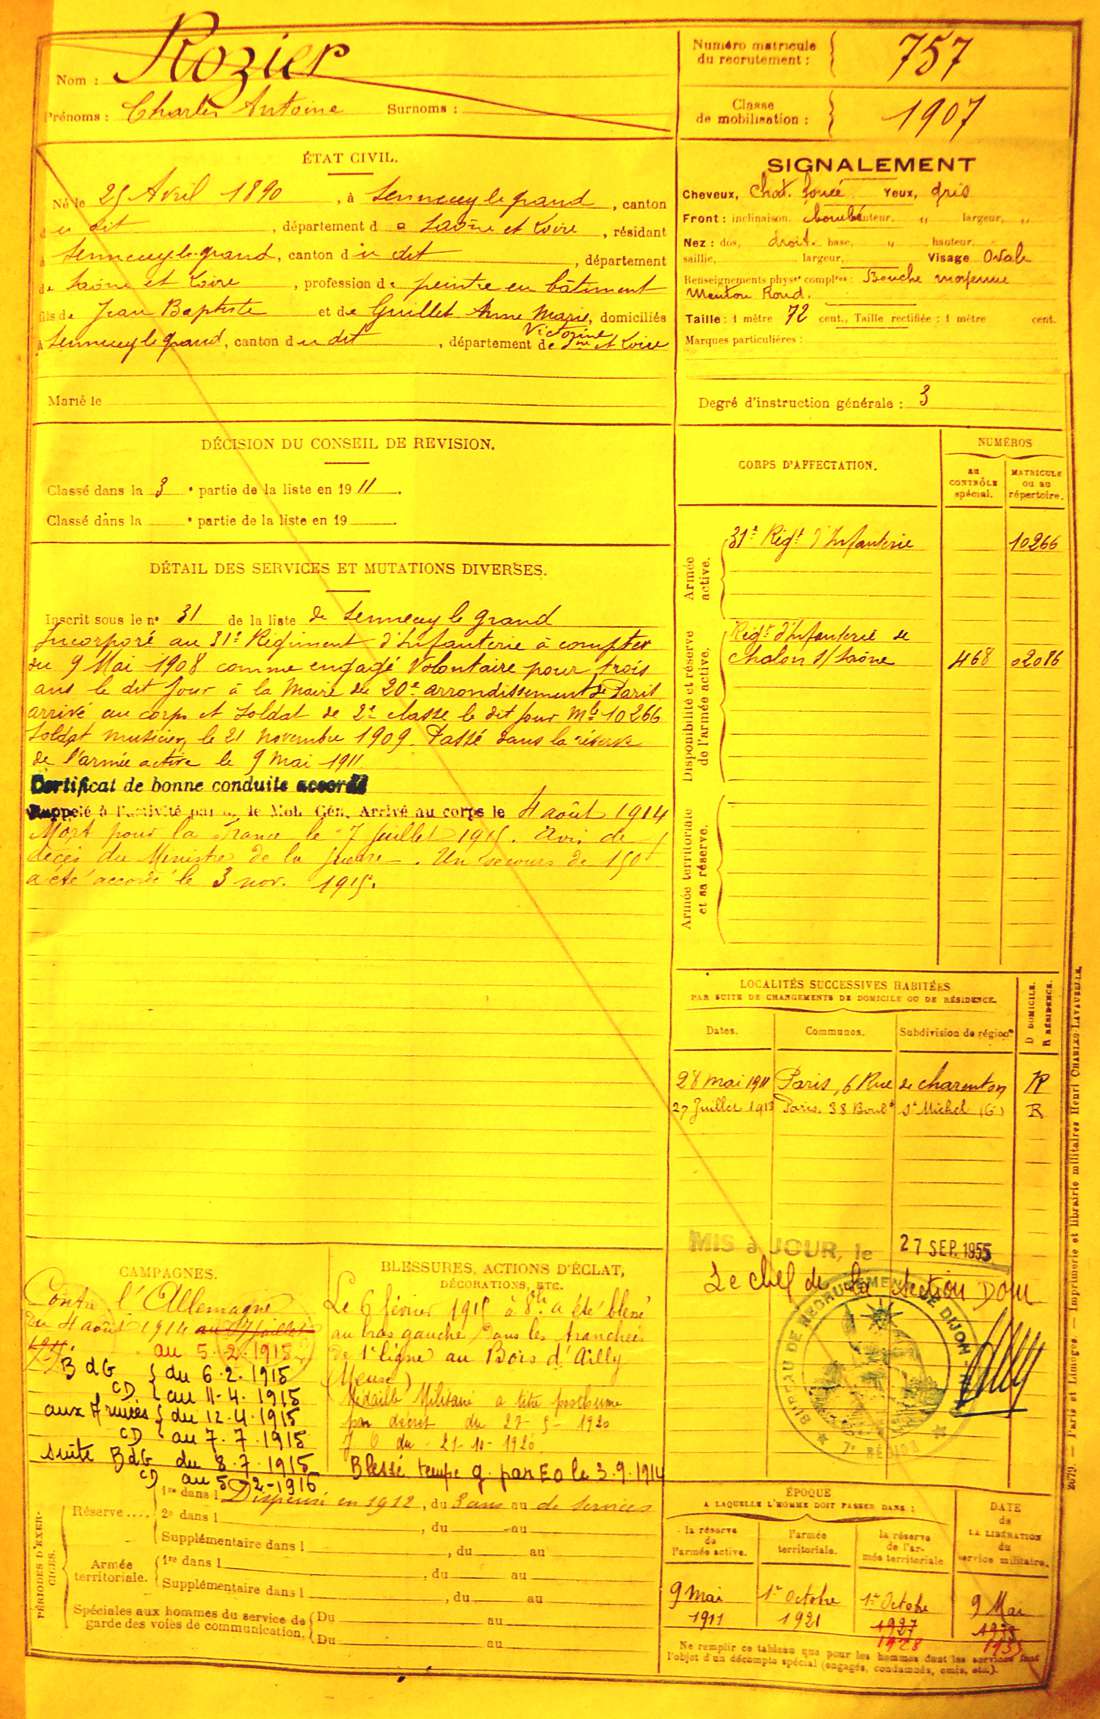 Nom : Rozier
Prénoms : Charles Antoine Surnoms :
Numéro matricule du recrutement : 757
Classe de mobilisation : 1907
ÉTAT CIVIL.
Né le 25 Avril 1890, à Sennecey le grand, canton
du dit, département de Saône et Loire, résidant
à Sennecey-le-grand, canton du dit, département
de Saône et Loire, profession de peintre en bâtiment
fils de Jean Baptiste et de Guillet Anne Marie, domiciliés
Victorine
à Sennecey le grand, canton du dit, département de Sne et Loire
Marié le
SIGNALEMENT
Cheveux, Chat. foncé Yeux, gris
Front : inclinaison, bombé hauteur, " largeur, "
Nez : dos, droit base, " hauteur,
saillie, largeur, Visage Ovale
Renseignements physes complres : Bouche moyenne
Menton Rond.
Taille : 1 mètre 72 cent., Taille rectifiée : 1 mètre cent.
Marques particulières :
Degré d'instruction générale : 3
DÉCISION DU CONSEIL DE REVISION.
Classé dans la 3e partie de la liste en 1911.
Classé dans la e partie de la liste en 19
DÉTAIL DES SERVICES ET MUTATIONS DIVERSES.
Inscrit sous le no 31 de la liste de Sennecey le grand
Incorporé au 31e Régiment d'Infanterie à compter
du 9 Mai 1908 comme engagé Volontaire pour trois
ans le dit jour à la Mairie du 20e arrondissement de Paris
arrivé au corps et soldat de 2e classe le dit jour Mle 10266
Soldat musicien le 21 novembre 1909. Passé dans la réserve
de l'armée active le 9 mai 1911
Certificat de bonne conduite accordé
Rappelé à l'activité par le Mob. Gén. Arrivé au corps le 4 août 1914
Mort pour la France le 7 Juillet 1915. Avis de
décès du Ministre de la guerre. Un secours de 150f
a été accordé le 3 nov. 1915.
CORPS D'AFFECTATION.
NUMÉROS
AU CONTRÔLE spécial.
MATRICULE OU AU répertoire.
Armée active.
31e Régt d'Infanterie 10266
Disponibilité et réserve de l'armée active.
Régt d'Infanterie de
Chalon s/Saône 468 02016
Armée territoriale et sa réserve.
LOCALITÉS SUCCESSIVES HABITÉES
PAR SUITE DE CHANGEMENTS DE DOMICILE OU DE RÉSIDENCE.
Dates. Communes. Subdivision de région. D DOMICILE. R RÉSIDENCE.
28 mai 1911 Paris, 6 Rue de Charenton R
27 Juillet 1913 Paris. 38 Boult St Michel (6) R
MIS à JOUR, le 27 SEP. 1955
Le chef de la section Dom
BUREAU DE RECRUTEMENT DE DIJON
7e RÉGION
CAMPAGNES.
Contre l'Allemagne
du 4 août 1914 au 7 juillet
1915
au 5-2-1915
BdG { du 6.2.1915
CD { au 11-4.1915
aux Armées { du 12.4.1915
CD au 7.7.1915
suite BdG du 8.7.1915
CD au 5-2-1916
BLESSURES, ACTIONS D'ÉCLAT,
DÉCORATIONS, ETC.
Le 6 février 1915 à 8h a été blessé
au bras gauche dans les tranchées
de 1e ligne au Bois d'Ailly
(Meuse)
Médaille Militaire à titre posthume
par décret du 27-5-1920
J O du 21-10-1920
Blessé tempe g. par EO le 3.9.1914
PÉRIODES D'EXERCICES.
Réserve .... 1re dans l Dispensé en 1912, du 3 ans au de services
2e dans l , du au
Supplémentaire dans l , du au
Armée territoriale. 1re dans l , du au
Supplémentaire dans l , du au
Spéciales aux hommes du service de garde des voies de communication. Du au
Du au
ÉPOQUE
A LAQUELLE L'HOMME DOIT PASSER DANS :
la réserve de l'armée active. l'armée territoriale. la réserve de l'armée territoriale
DATE de LA LIBÉRATION du service militaire.
9 Mai 1911 1er Octobre 1921 1er Octobre 1927 1928 9 Mai 1933 1935
Ne remplir ce tableau que pour les hommes dont les services font
l'objet d'un décompte spécial (engagés, condamnés, omis, etc.).
2079. — Paris et Limoges. — Imprimerie et librairie militaires Henri CHARLES-LAVAUZELLE.